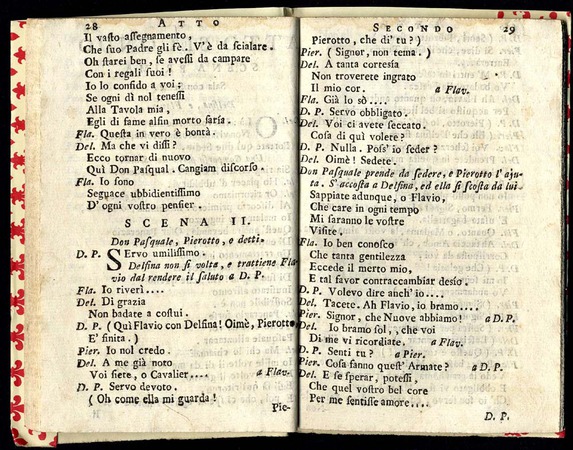 28 ATTO
Il vasto assegnamento,
Che suo Padre gli fè. V'è da scialare.
Oh starei ben, se avessi da campare
Con i regali suoi!
Io lo consido a voi;
Se ogni dì nol tenessi
Alla Tavola mia,
Egli di fame alfin morto saria.
Fla. Questa in vero è bontà.
Del. Ma che vi dissi?
Ecco tornar di nuovo
Quì Don Pasqual. Cangiam discorso.
Fla. Io sono
Seguace ubbidientissimo
D'ogni vostro pensier.
SCENA II.
Don Pasquale, Pierotto, e detti.
D. P. SErvo umilissimo.
Delfina non si volta, e trattiene Fla-
vio dal rendere il saluto a D. P.
Fla. Io riverì....
Del. Di grazia
Non badate a costui.
D. P. (Quì Flavio con Delfina! Oimè, Pierotto,
E' finita.)
Pier. Io nol credo.
Del. A me già noto
Voi siete, o Cavalier.... a Flav.
D. P. Servo devoto.
(Oh come ella mi guarda!
Pie-
SECONDO 29
Pierotto, che di' tu?)
Pier. (Signor, non tema.)
Del. A tanta cortesia
Non troverete ingrato
Il mio cor. a Flav.
Fla. Già lo sò....
D. P. Servo obbligato.
Del. Voi ci avete seccato.
Cosa di quà volere?
D. P. Nulla. Poss' io seder?
Del. Oimè! Sedete.
Don Pasquale prende da sedere, e Pierotto l'aju-
ta. S'accosta a Delfina, ed ella si scosta da lui.
Sappiate adunque, o Flavio,
Che care in ogni tempo
Mi saranno le vostre
Visite.
Fla. Io ben conosco
Che tanta gentilezza
Eccede il merto mio,
E tal favor contraccambiar desio.
D. P. Volevo dire anch'io....
Del. Tacete. Ah Flavio, io bramo....
Pier. Signor, che Nuove abbiamo! a D. P.
Del. Io bramo sol, che voi
Di me vi ricordiate. a Flav.
D. P. Senti tu? a Pier.
Pier. Cosa fanno quest' Armate? a D. P.
Del. E se sperar, potessi,
Che quel vostro bel core
Per me sentisse amore....
D. P.